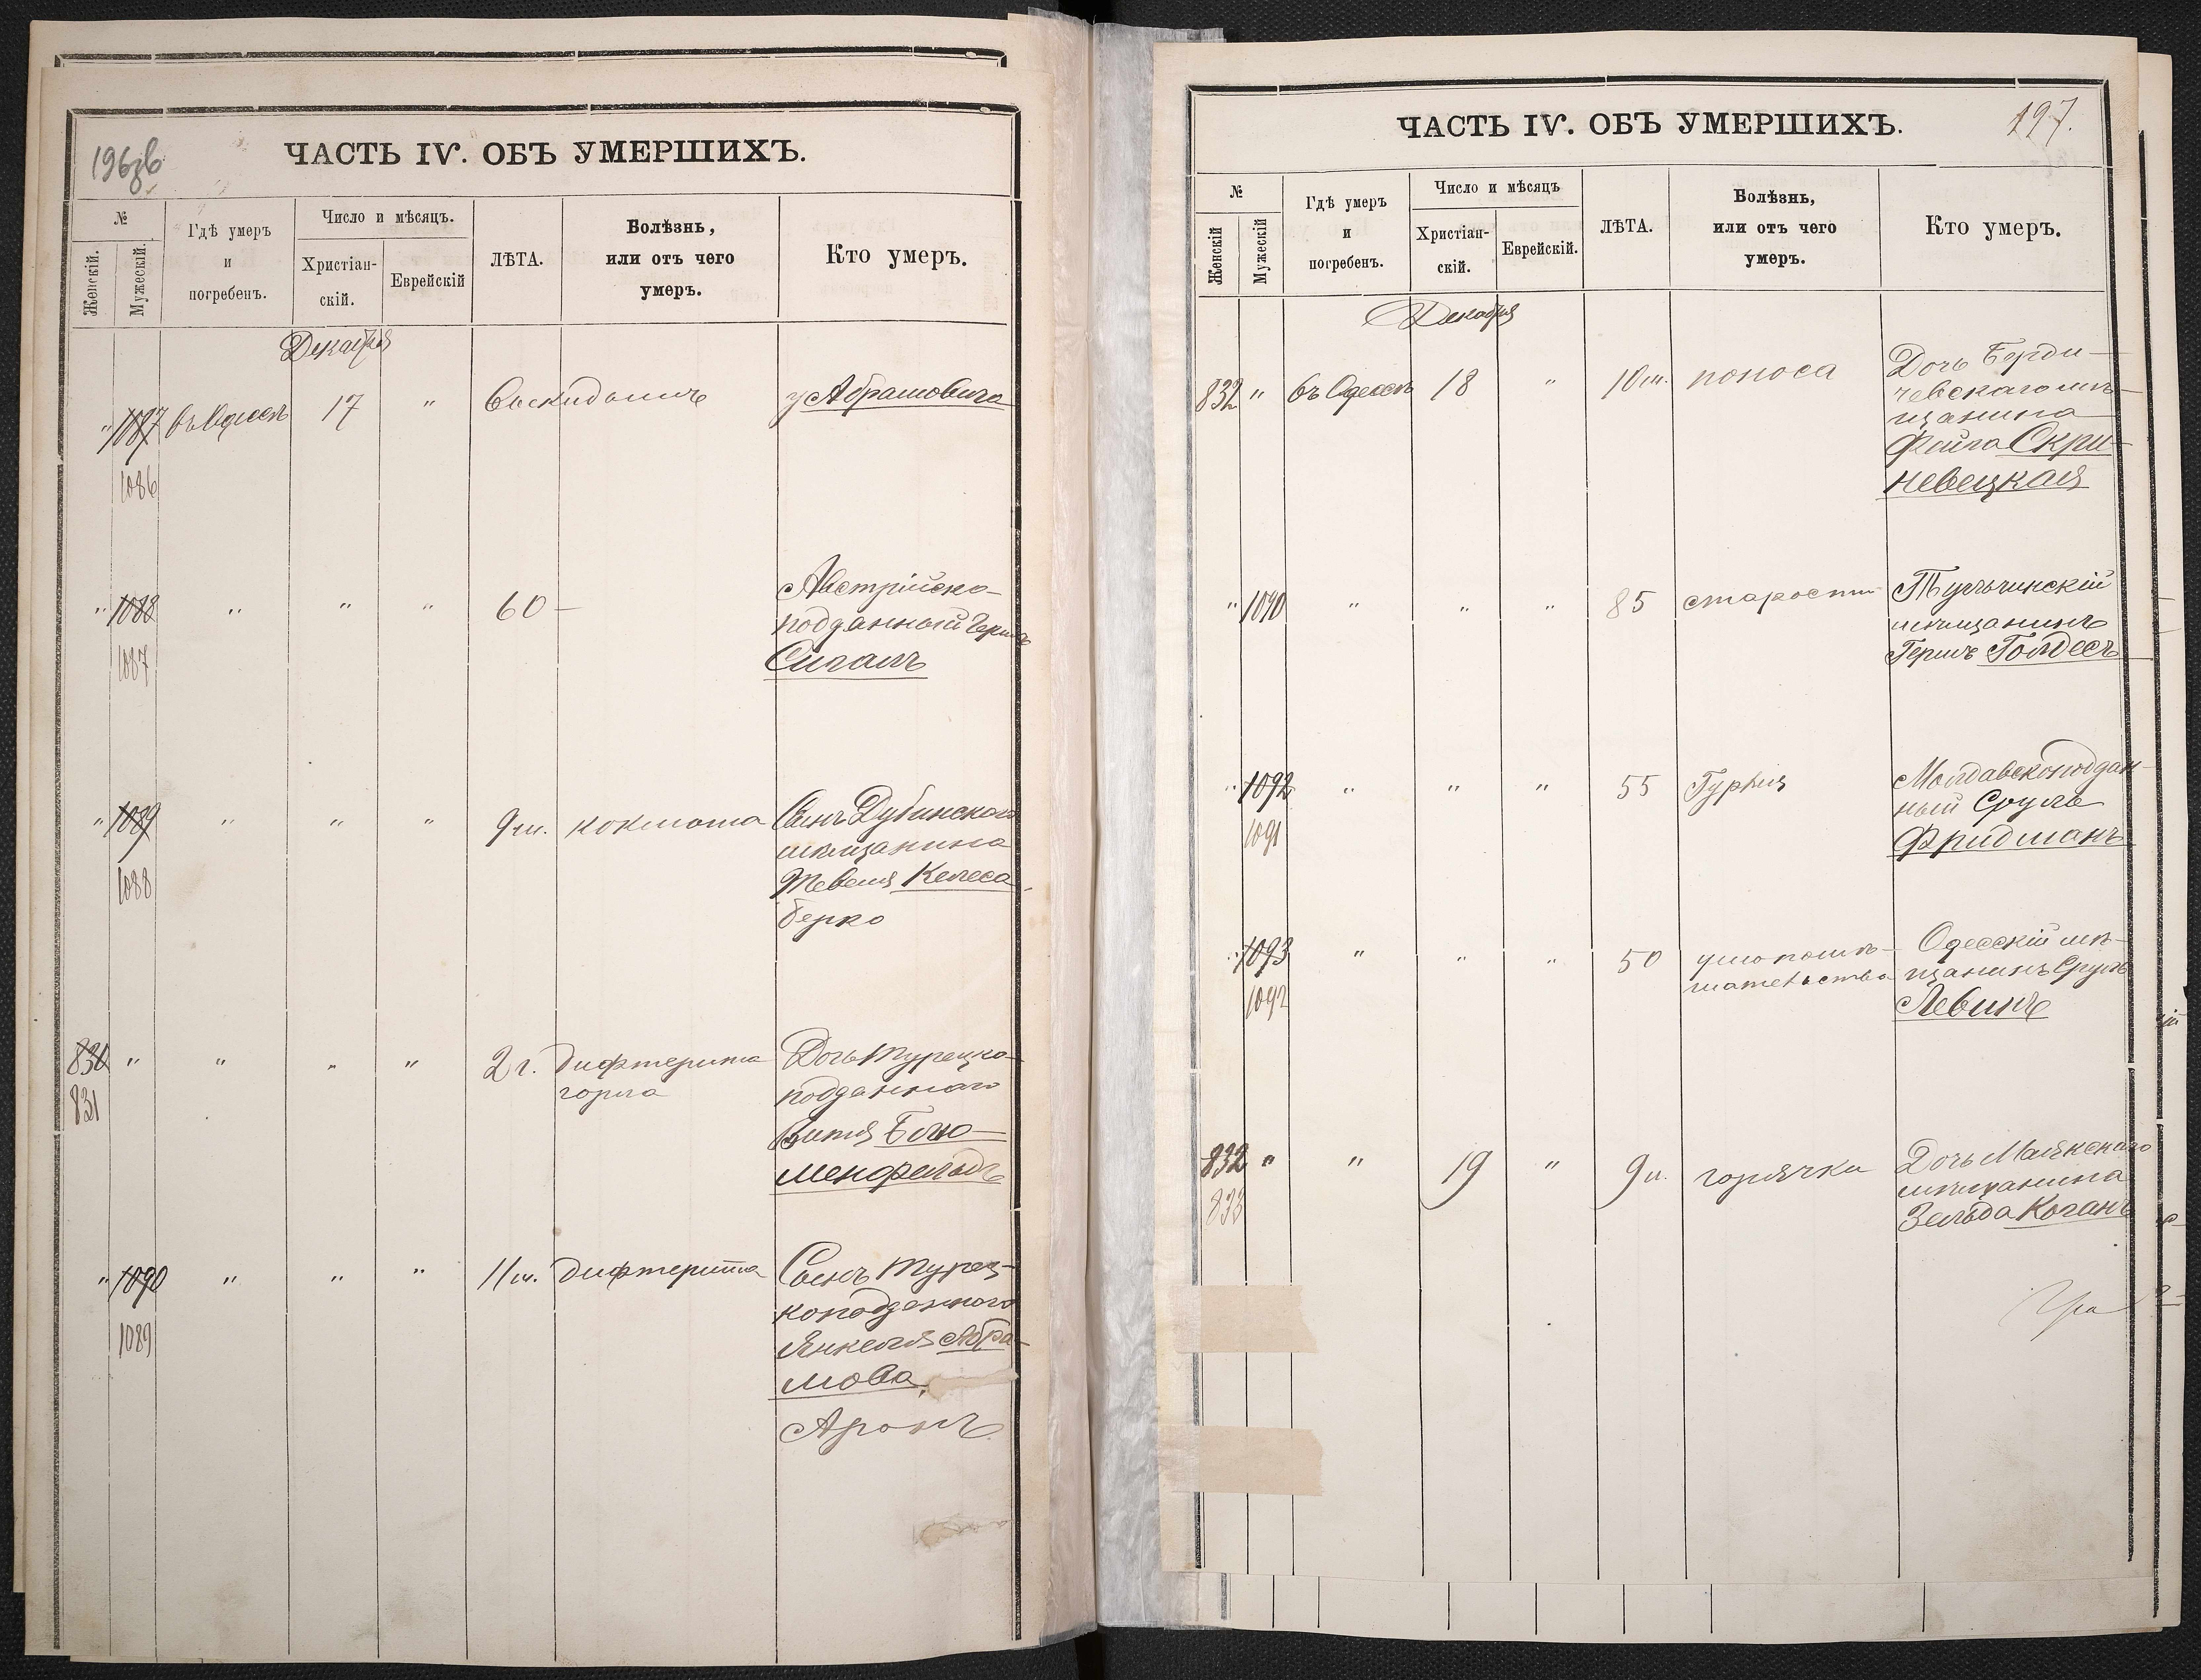 196зв
ЧАСТЬ IV. ОБЪ УМЕРШИХЪ.
№
Женскій.
Мужескій.
Гдѣ умеръ
и
погребенъ.
Число и мѣсяцъ.
Христіан-
скій.
Еврейскій
ЛѢТА.
Болѣзнь,
или отъ чего
умеръ.
Кто умеръ.
Декабря
" 1087 въ Одессѣ 17 " Выкидышъ у Абрамовича
1086
" 1088 " " " 60 — Австрійско-
подданный Гершъ
Сигалъ
1087
" 1089 " " " 9 м. коклюша Сынъ Дубинскаго
мѣщанина
Тевеля Келеса
Берко
1088
830 " " " " 2 г. дифтерита Дочь Турецко-
горла подданнаго
831
Витя Блю-
менфельдъ
" 1090 " " " 11 м. дифтерита Сынъ Турец-
коподданного
1089
Янкеля Абра-
мова,
Аронъ
197.
ЧАСТЬ IV. ОБЪ УМЕРШИХЪ.
№
Женскій
Мужескій
Гдѣ умеръ
и
погребенъ.
Число и мѣсяцъ
Христіан-
скій.
Еврейскій.
ЛѢТА.
Болѣзнь,
или отъ чего
умеръ.
Кто умеръ.
Декабря
832 " въ Одессѣ 18 " 10 м. поноса Дочь Берди-
чевскаго мѣ-
щанина
Фейга Скри-
невецкая
" 1090 " " " 85 старости Тульчинскій
мѣщанинъ
Гершъ Голдесъ
" 1092 " " " 55 Молдавскоподдан-
ный Сруль
1091
Фридманъ
" 1093 " " " 50 умопомѣ- Одесскій мѣ-
шательства щанинъ Сруль
1092
Левинъ
832 " " 19 " 9 м. горячки Дочь Маякскаго
мѣщанина
833
Зельда Коганъ